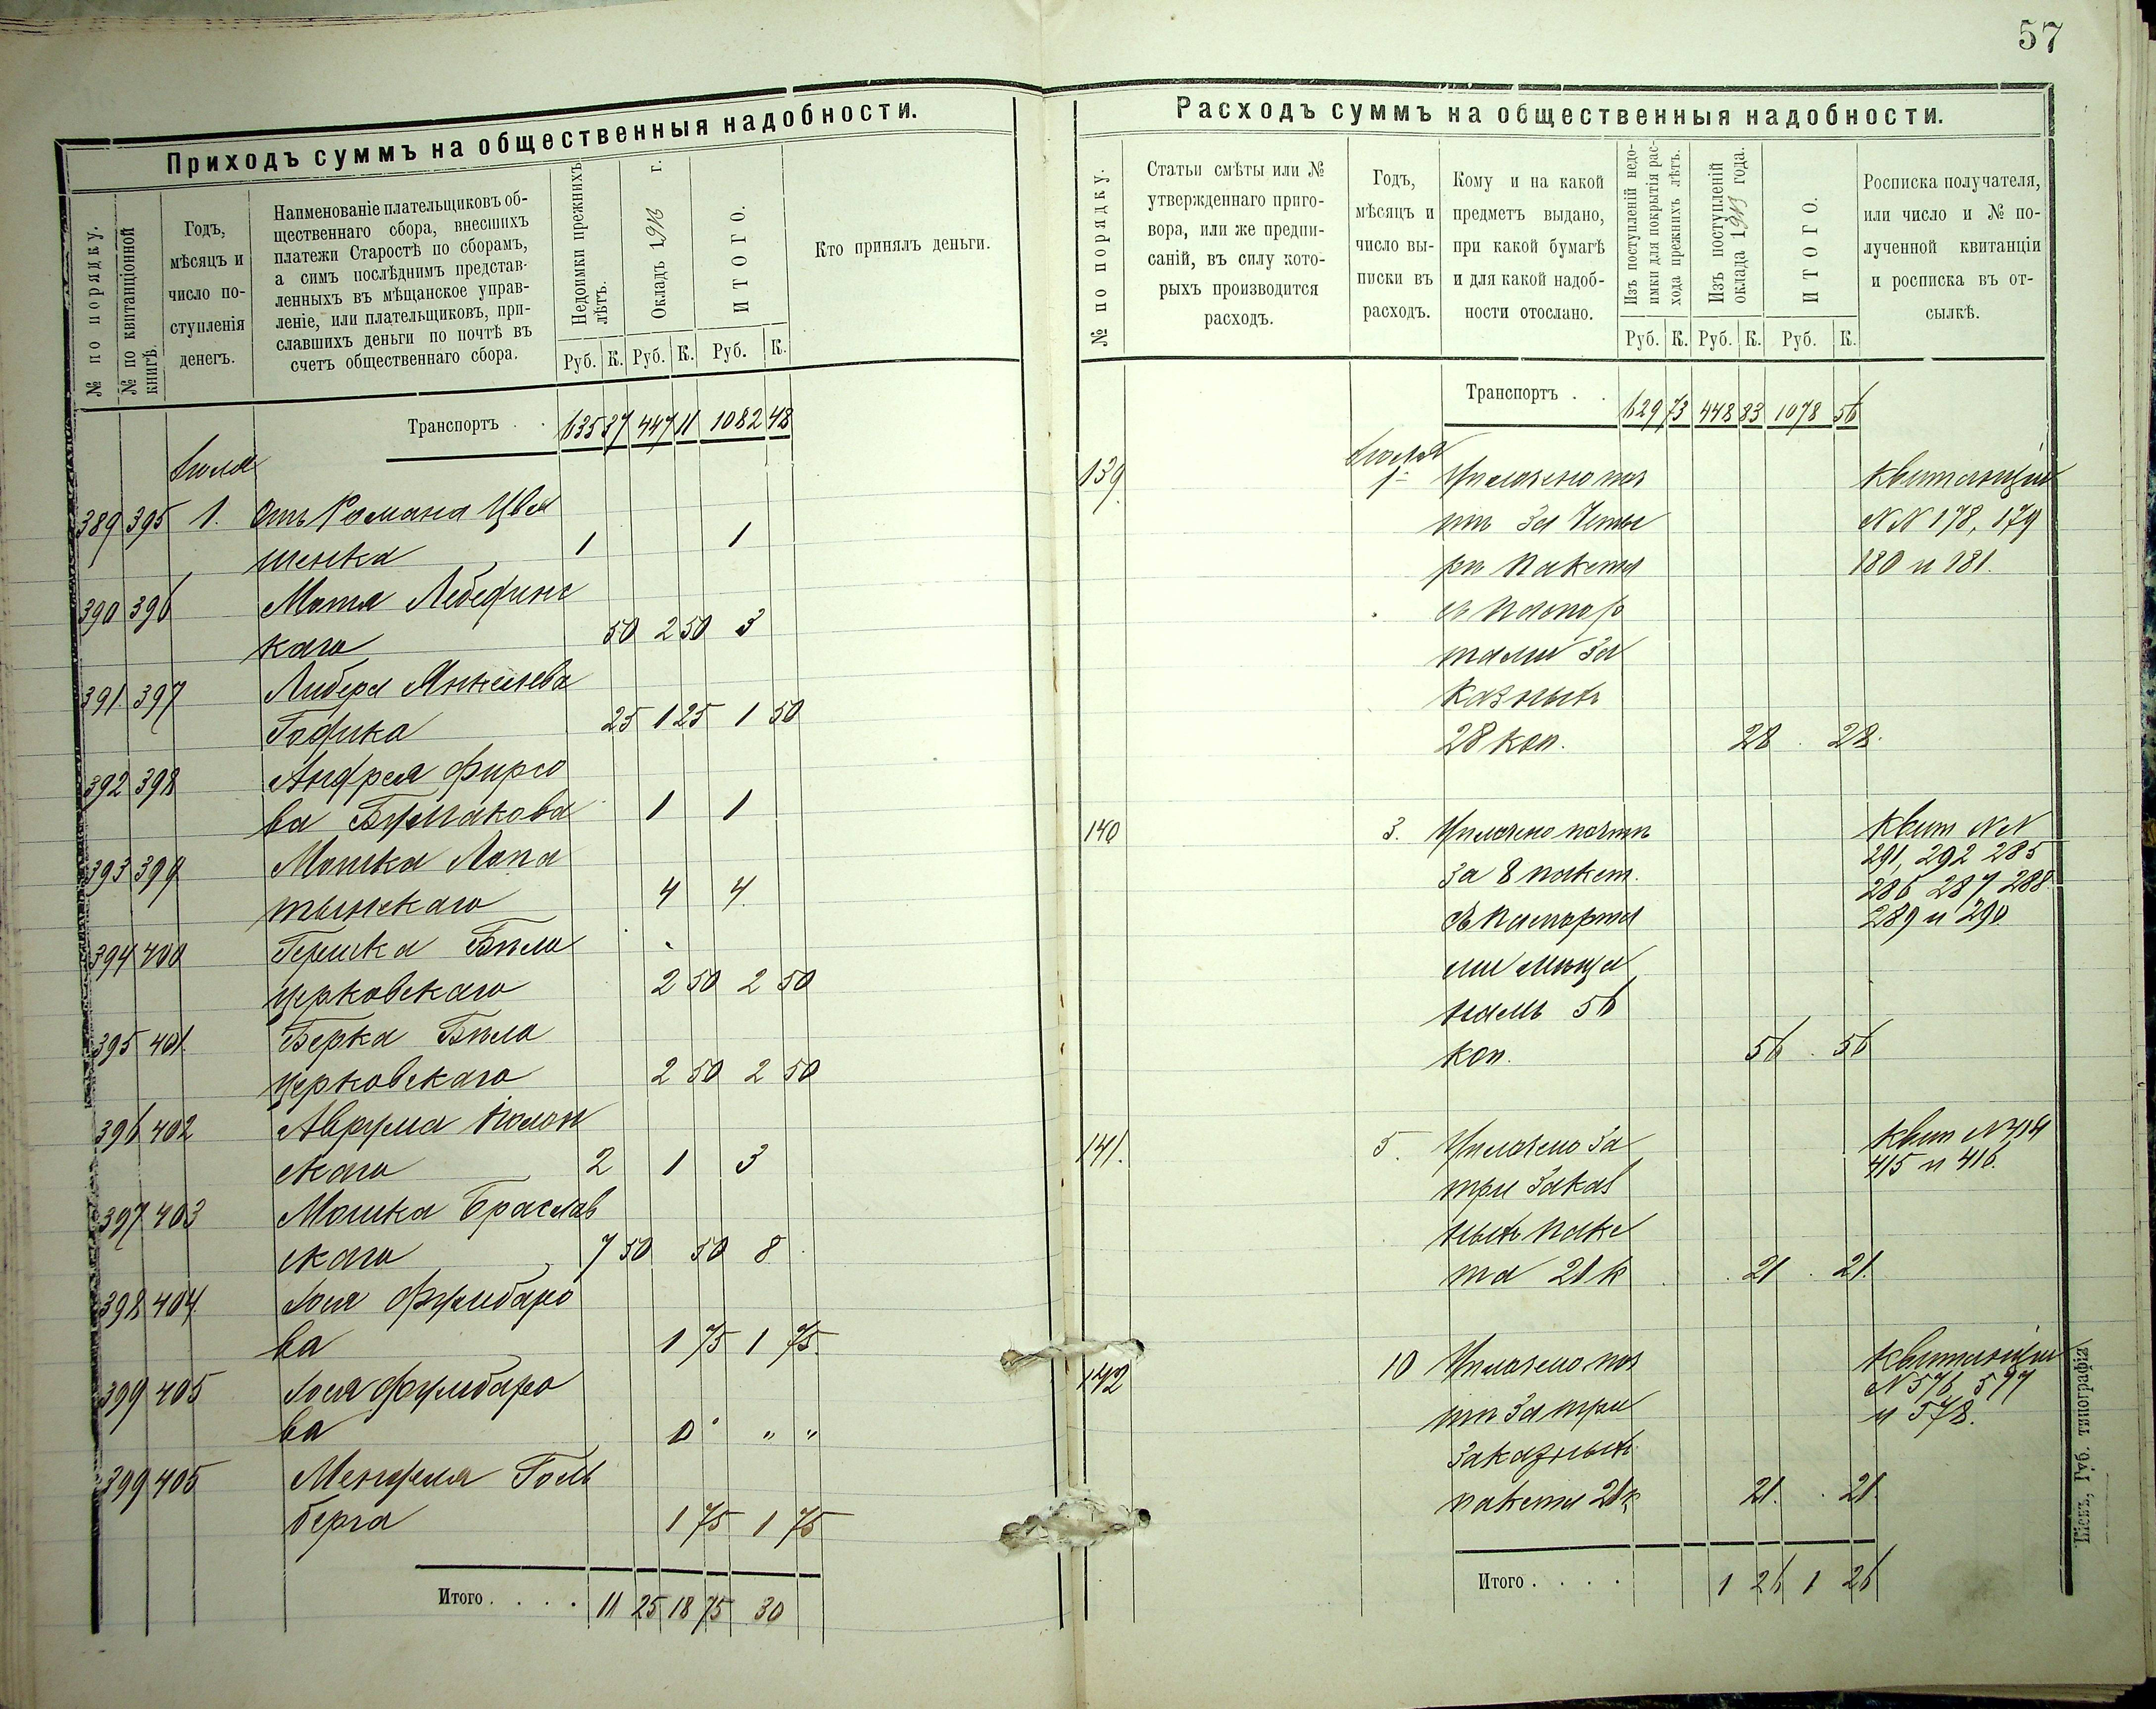 57
Приходъ суммъ на общественныя надобности.
№ по порядку.
№ по квитанціонной книгѣ.
Годъ,
мѣсяцъ и
число по-
ступленія
денегъ.
Наименованіе плательщиковъ об-
щественнаго сбора, внесшихъ
платежи Старостѣ по сборамъ,
а симъ послѣднимъ представ-
ленныхъ въ мѣщанское управ-
леніе, или плательщиковъ, при-
славшихъ деньги по почтѣ въ
счетъ общественнаго сбора.
Недоимки прежнихъ
лѣтъ.
Окладъ 1913 г.
ИТОГО.
Кто принялъ деньги.
Руб. К. Руб. К. Руб. К.
Транспортъ . . 635 37 447 11 1082 48
Іюля
389 395 1. Отъ Романа Цвѣ
шенка 1 1
390 396 Мотя Лебединс
каго 50 2 50 3
391 397 Либера Янкелева
Гофика 25 1 25 1 50
392 398 Андрея Фирсо
ва Бурлакова 1 1
393 399 Мошка Лопа
тынскаго 4 4
394 400 Гершка Бѣло
церковскаго 2 50 2 50
395 401 Берка Бѣло
церковскаго 2 50 2 50
396 402 Аврума Полон
скаго 2 1 3
397 403 Мошка Браслав
скаго 7 50 50 8
398 404 Іося Фушбаро
ва 1 75 1 75
399 405 Іося Фушбаро
ва 0 " "
399 405 Менделя Голь
берга 1 75 1 75
Итого . . . . 11 25 18 75 30
Расходъ суммъ на общественныя надобности.
№ по порядку.
Статьи смѣты или №
утвержденнаго приго-
вора, или же предпи-
саній, въ силу кото-
рыхъ производится
расходъ.
Годъ,
мѣсяцъ и
число вы-
писки въ
расходъ.
Кому и на какой
предметъ выдано,
при какой бумагѣ
и для какой надоб-
ности отослано.
Изъ поступленій недо-
имки для покрытія рас-
хода прежнихъ лѣтъ.
Изъ поступленій
оклада 1913 года.
ИТОГО.
Росписка получателя,
или число и № по-
лученной квитанціи
и росписка въ от-
сылкѣ.
Руб. К. Руб. К. Руб. К.
Транспортъ . . 629 73 448 83 1078 56
Іюля
139 1 Уплочено поч Квитанціи
тѣ За Четы NN 178, 179
ри пакета 180 и 181.
съ паспор
тами За
казныхъ
28 коп. 28 28.
140 3. Уплочено почтѣ Квит NN
за 8 пакет. 291, 292 285
съ паспорта 286 287 288
ми мѣща 289 и 290
намъ 56
коп. 56 56
141. 5. Уплочено За Квит N 414
три Заказ 415 и 416.
ныхъ паке
та 21 к 21 21.
142 10 Уплочено поч Квитанціи
тѣ За три N 576, 577
Заказныхъ и 578.
пакета 21 к 21. 21.
Итого . . . . 1 26 1 26
Кіевъ, Губ. типографія